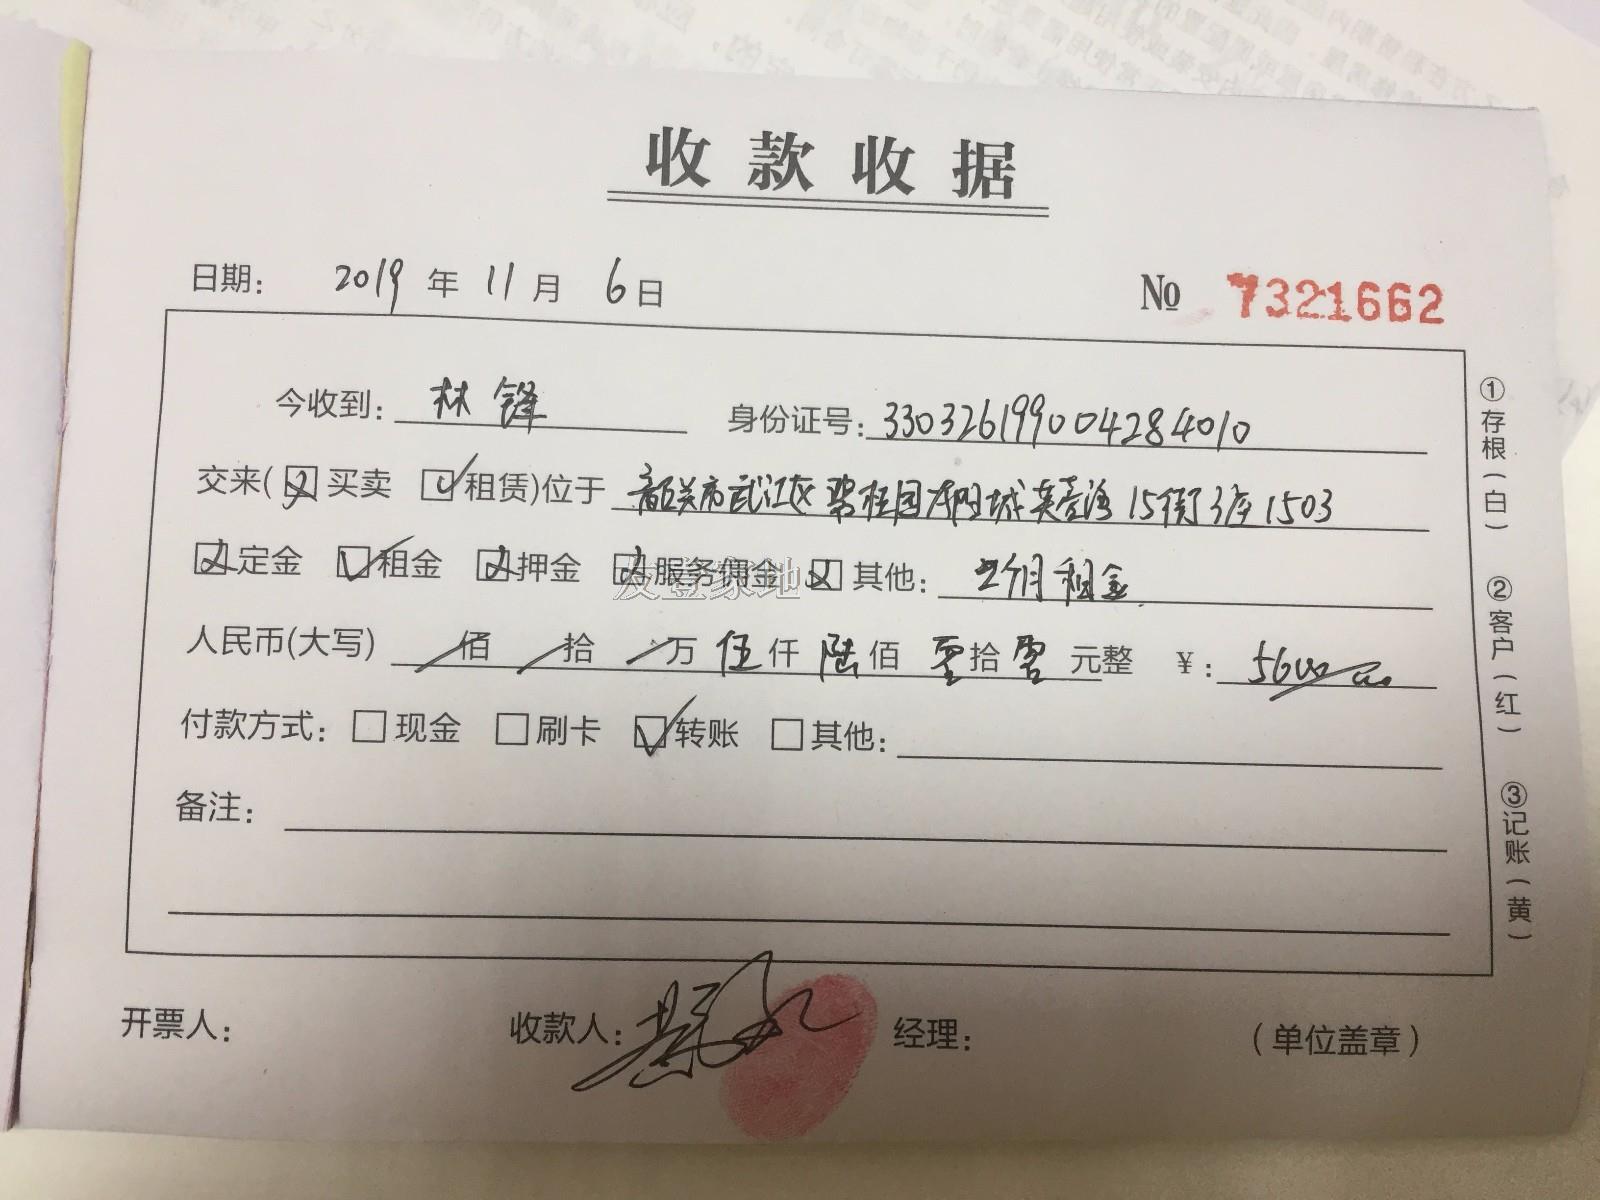 收款收据
日期： 2019 年 11 月 6 日 № 7321662
今收到： 林锋 身份证号： 330326199004284010
交来( 买卖 租赁)位于 韶关市武江区碧桂园太阳城芙蓉湾15街3座1503
定金 租金 押金 服务佣金 其他： 2个月租金
友登家地
人民币(大写) 佰 拾 万 伍 仟 陆 佰 零 拾 零 元整 ￥： 5600
付款方式： 现金 刷卡 转账 其他：
备注：
开票人： 收款人： 经理： （单位盖章）
①存根(白) ②客户(红) ③记账(黄)